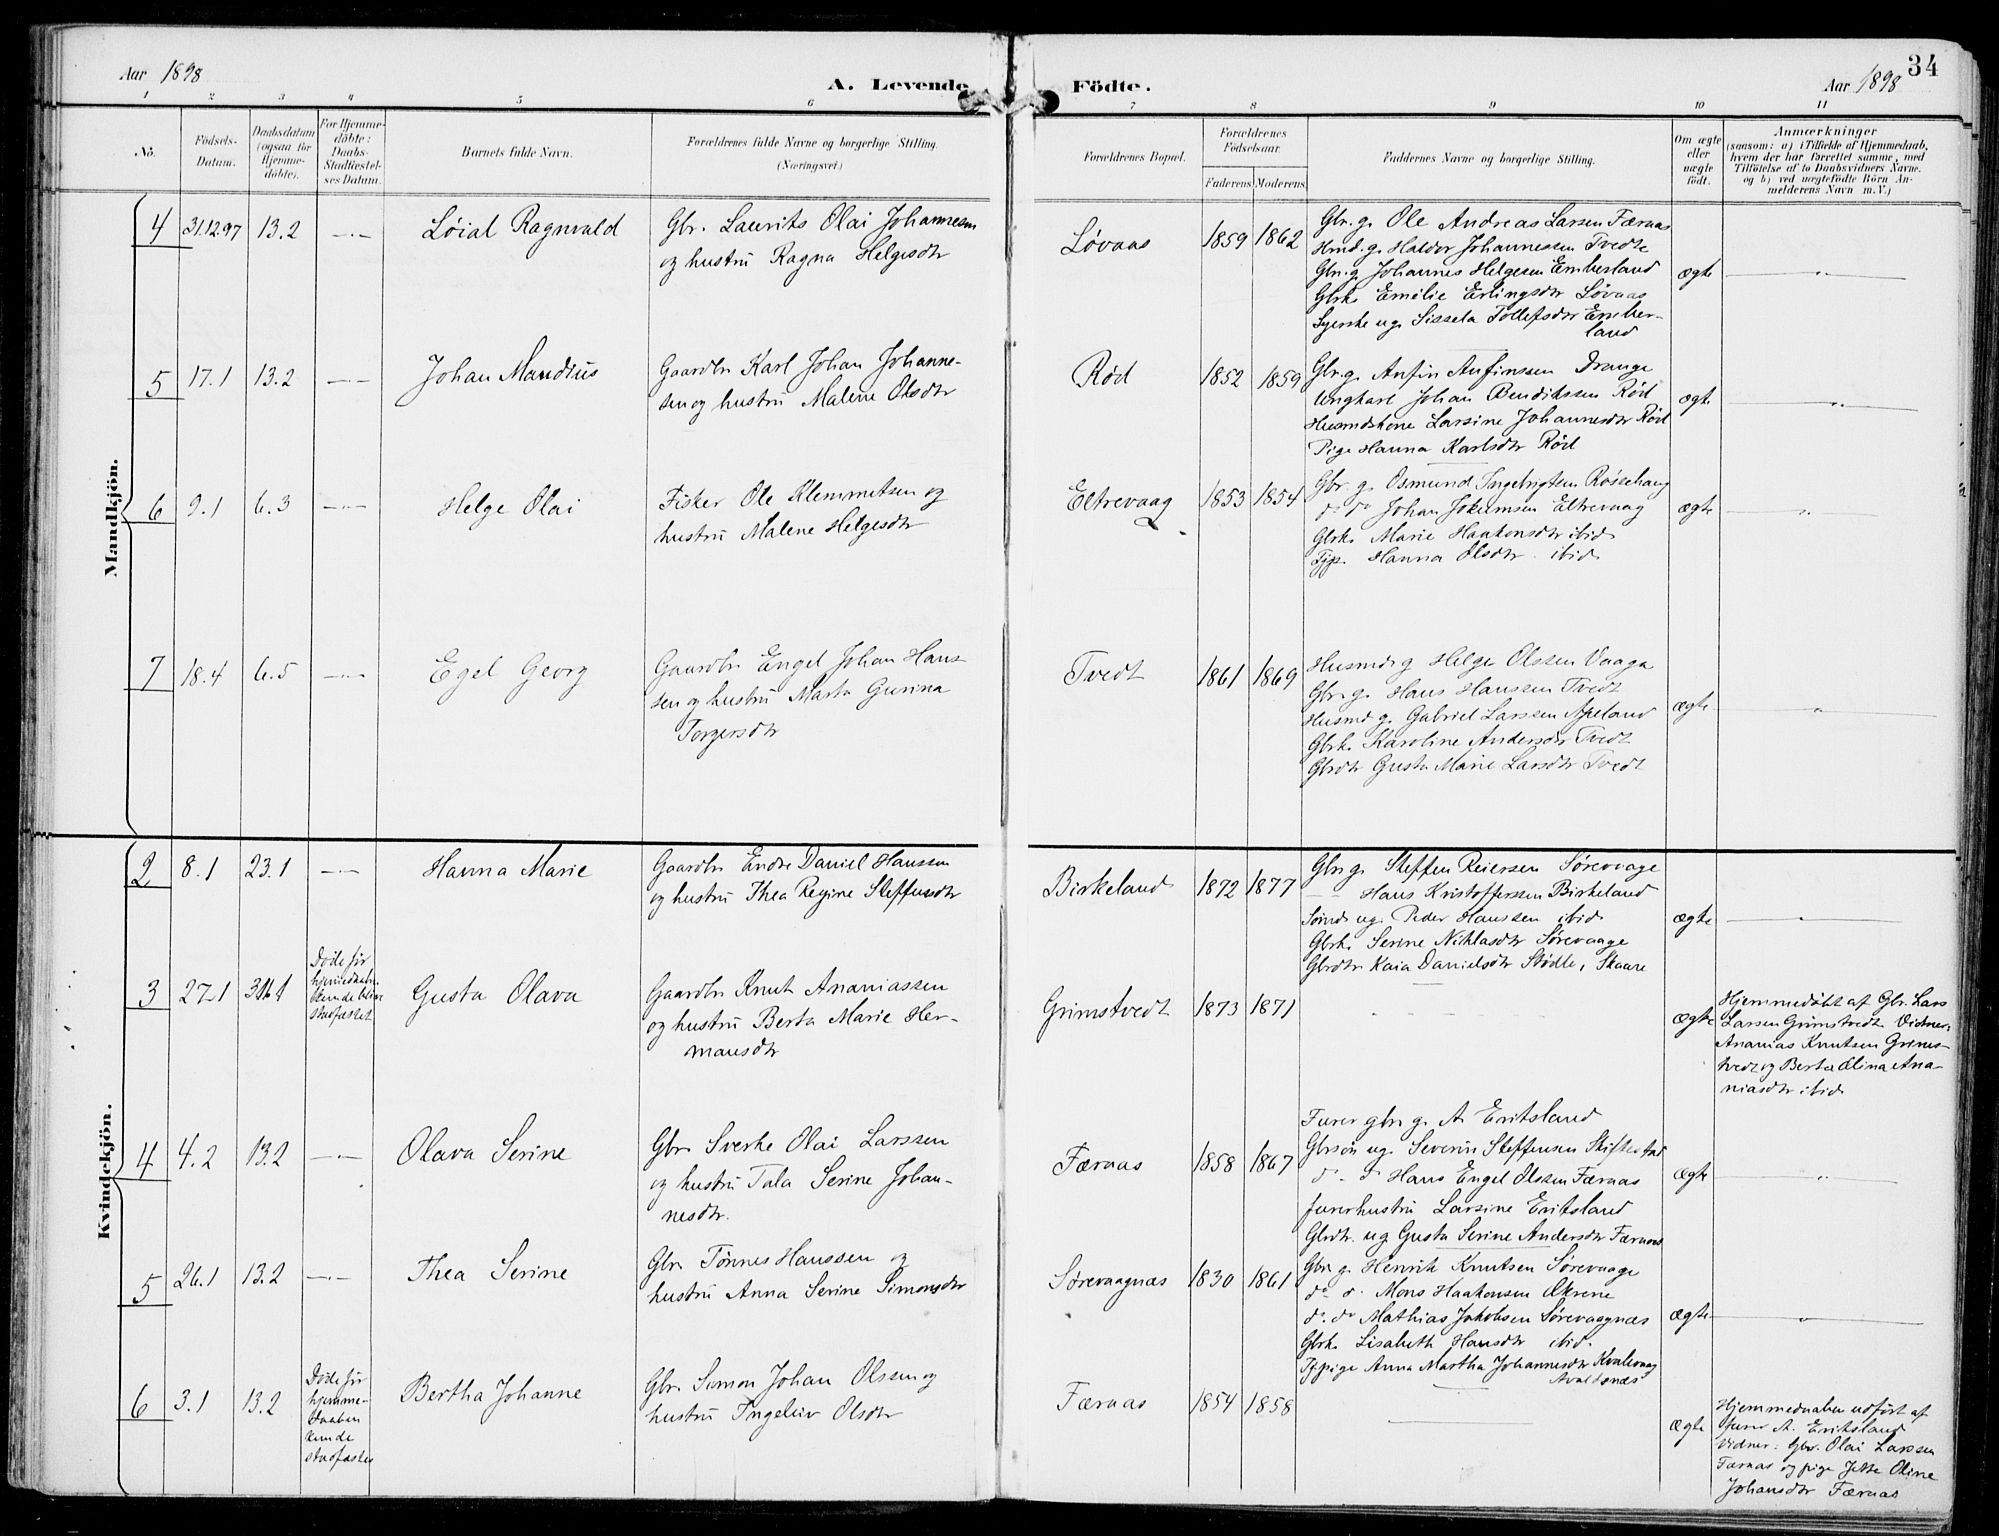 Aar 1898
A. Levende
Födte.
Aar 1898
34
1 2 3 4 5 6 7 8 9 10 11
No.
Födsels-
Datum.
Daabsdatum
(ogsaa for
Hjemme-
döbte).
For Hjemme-
döbte:
Daabs-
Stadfæstel-
ses Datum.
Barnets fulde Navn.
Forældrenes fulde Navne og borgerlige Stilling.
(Næringsvei.)
Forældrenes Bopæl.
Forældrenes
Födselsaar.
Faderens Moderens
Faddernes Navne og borgerlige Stilling.
Om ægte
eller
uægte
födt.
Anmærkninger
(saasom: a) i Tilfælde af Hjemmedaab,
hvem der har forrettet samme, med
Tilföielse af to Daabsvidners Navne.
og b) ved uægtefödte Börn An-
melderens Navn m. V.)
Mandkjön.
4 31.12.97 13.2 —"—
Løial Ragnvald
Gbr. Laurits Olai Johannesen
og hustru Ragna Helgesdtr
Løvaas
1859 1862
Gbr. g. Ole Andreas Larsen Færaas
Hmd. g. Haldor Johannessen Tvedte
Gbr. g. Johannes Helgesen Emberland
Gbrk. Emelie Erlingsdtr Løvaas
Syerske ug. Sissela Tollefsdtr Ember-
land
ægte
—"—
5 17.1 13.2 —"—
Johan Mandius
Gaardbr Karl Johan Johanne-
sen og hustru Malene Olsdtr
Rød
1852 1859
Gbr. g. Anfin Anfinssen Drange
Ungkarl Johan Bendikssen Rød
Husmdskone Larsine Johannesdtr Rød
Pige Hanna Karlsdtr Rød
ægte
—"—
6 9.1 6.3 —"—
Helge Olai
Fisker Ole Klemmetsen og
hustru Malene Helgesdtr
Eltrevaag
1853 1854
Gbr. g. Osmund Ingebrigtsen Røssehaug
do do Johan Jokumsen Eltrevaag
Gbrk. Marie Haakonsdtr ibid.
Tjp. Hanna Olsdtr. ibid.
ægte
—"—
7 18.4 6.5 —"—
Egel Georg
Gaardbr Engel Johan Hans-
sen og hustru Marta Gurina
Torgersdtr
Tvedt
1861 1869
Husmd g Helge Olssen Vaaga
Gbr. g. Hans Hanssen Tvedt
Husmd g. Gabriel Larssen Apeland
Gbrk. Karoline Andersdtr Tvedt
Gbrdtr Gusta Marie Larsdtr Tvedt
ægte
—"—
Kvindekjön.
2 8.1 23.1 —"—
Hanna Marie
Gaardbr Endre Daniel Hanssen
og hustru Thea Regine Steffensdtr
Birkeland
1872 1877
Gbr. g. Steffen Reiersen Sørevaage
— Hans Kristofferssen Birkeland
Sømd. ug. Peder Hanssen ibid.
Gbrk. Serine Niklasdtr Sørevaage
Gbrdtr Kaia Danielsdtr Stødle, Skaare
ægte
—"—
3 27.1
Døde før
hjemmedaaben
kunde blive
stadfæstet
Gusta Olava
Gaardbr Knut Ananiassen
og hustru Berta Marie Her-
mansdtr
Grimstvedt
1873 1871
ægte
Hjemmedøbt af Gbr. Lars
Larsen Grimstvedt. Vidner:
Ananias Knutsen Grims-
tvedt og Berta Elina Ana-
niasdtr ibid.
4 4.2 13.2 —"—
Olava Serine
Gbr. Sverke Olai Larssen
og hustru Tala Serine Johan-
nesdtr.
Færaas
1858 1867
Furer gbr. g. A. Eritsland
Gbrsøn ug. Severin Steffensen Skiftestad
d. d. Hans Engel Olssen Færaas
furerhustru Larsine Eritsland
Gbrdtr. ug Gusta Serine Andersdtr Færaas
ægte
—"—
5 26.1 13.2 —"—
Thea Serine
Gbr. Tønnes Hanssen og
hustru Anna Serine Simonsdtr
Sørevaagnæs
1830 1861
Gbr. g. Henrik Knutsen Sørevaage
do d. Mons Haakonsen Økrene
d. do Mathias Jakobsen Sørevaagnæs
Gbrk. Lisabeth Hansdtr ibid.
Tjpige Anna Martha Johannesdtr Kvalevaag
Avaldsnæs
ægte
—"—
6 3.1 13.2
Døde før
hjemme-
daaben
kunde
stadfæstes
Bertha Johanne
Gbr. Simon Johan Olssen og
hustru Ingeleiv Olsdtr
Færaas
1854 1858
ægte
Hjemmedaaben udført af
furer A. Eritsland
Vidner: Gbr. Olai Larssen
Færaas og pige Jette Oline
Johansdtr Færaas